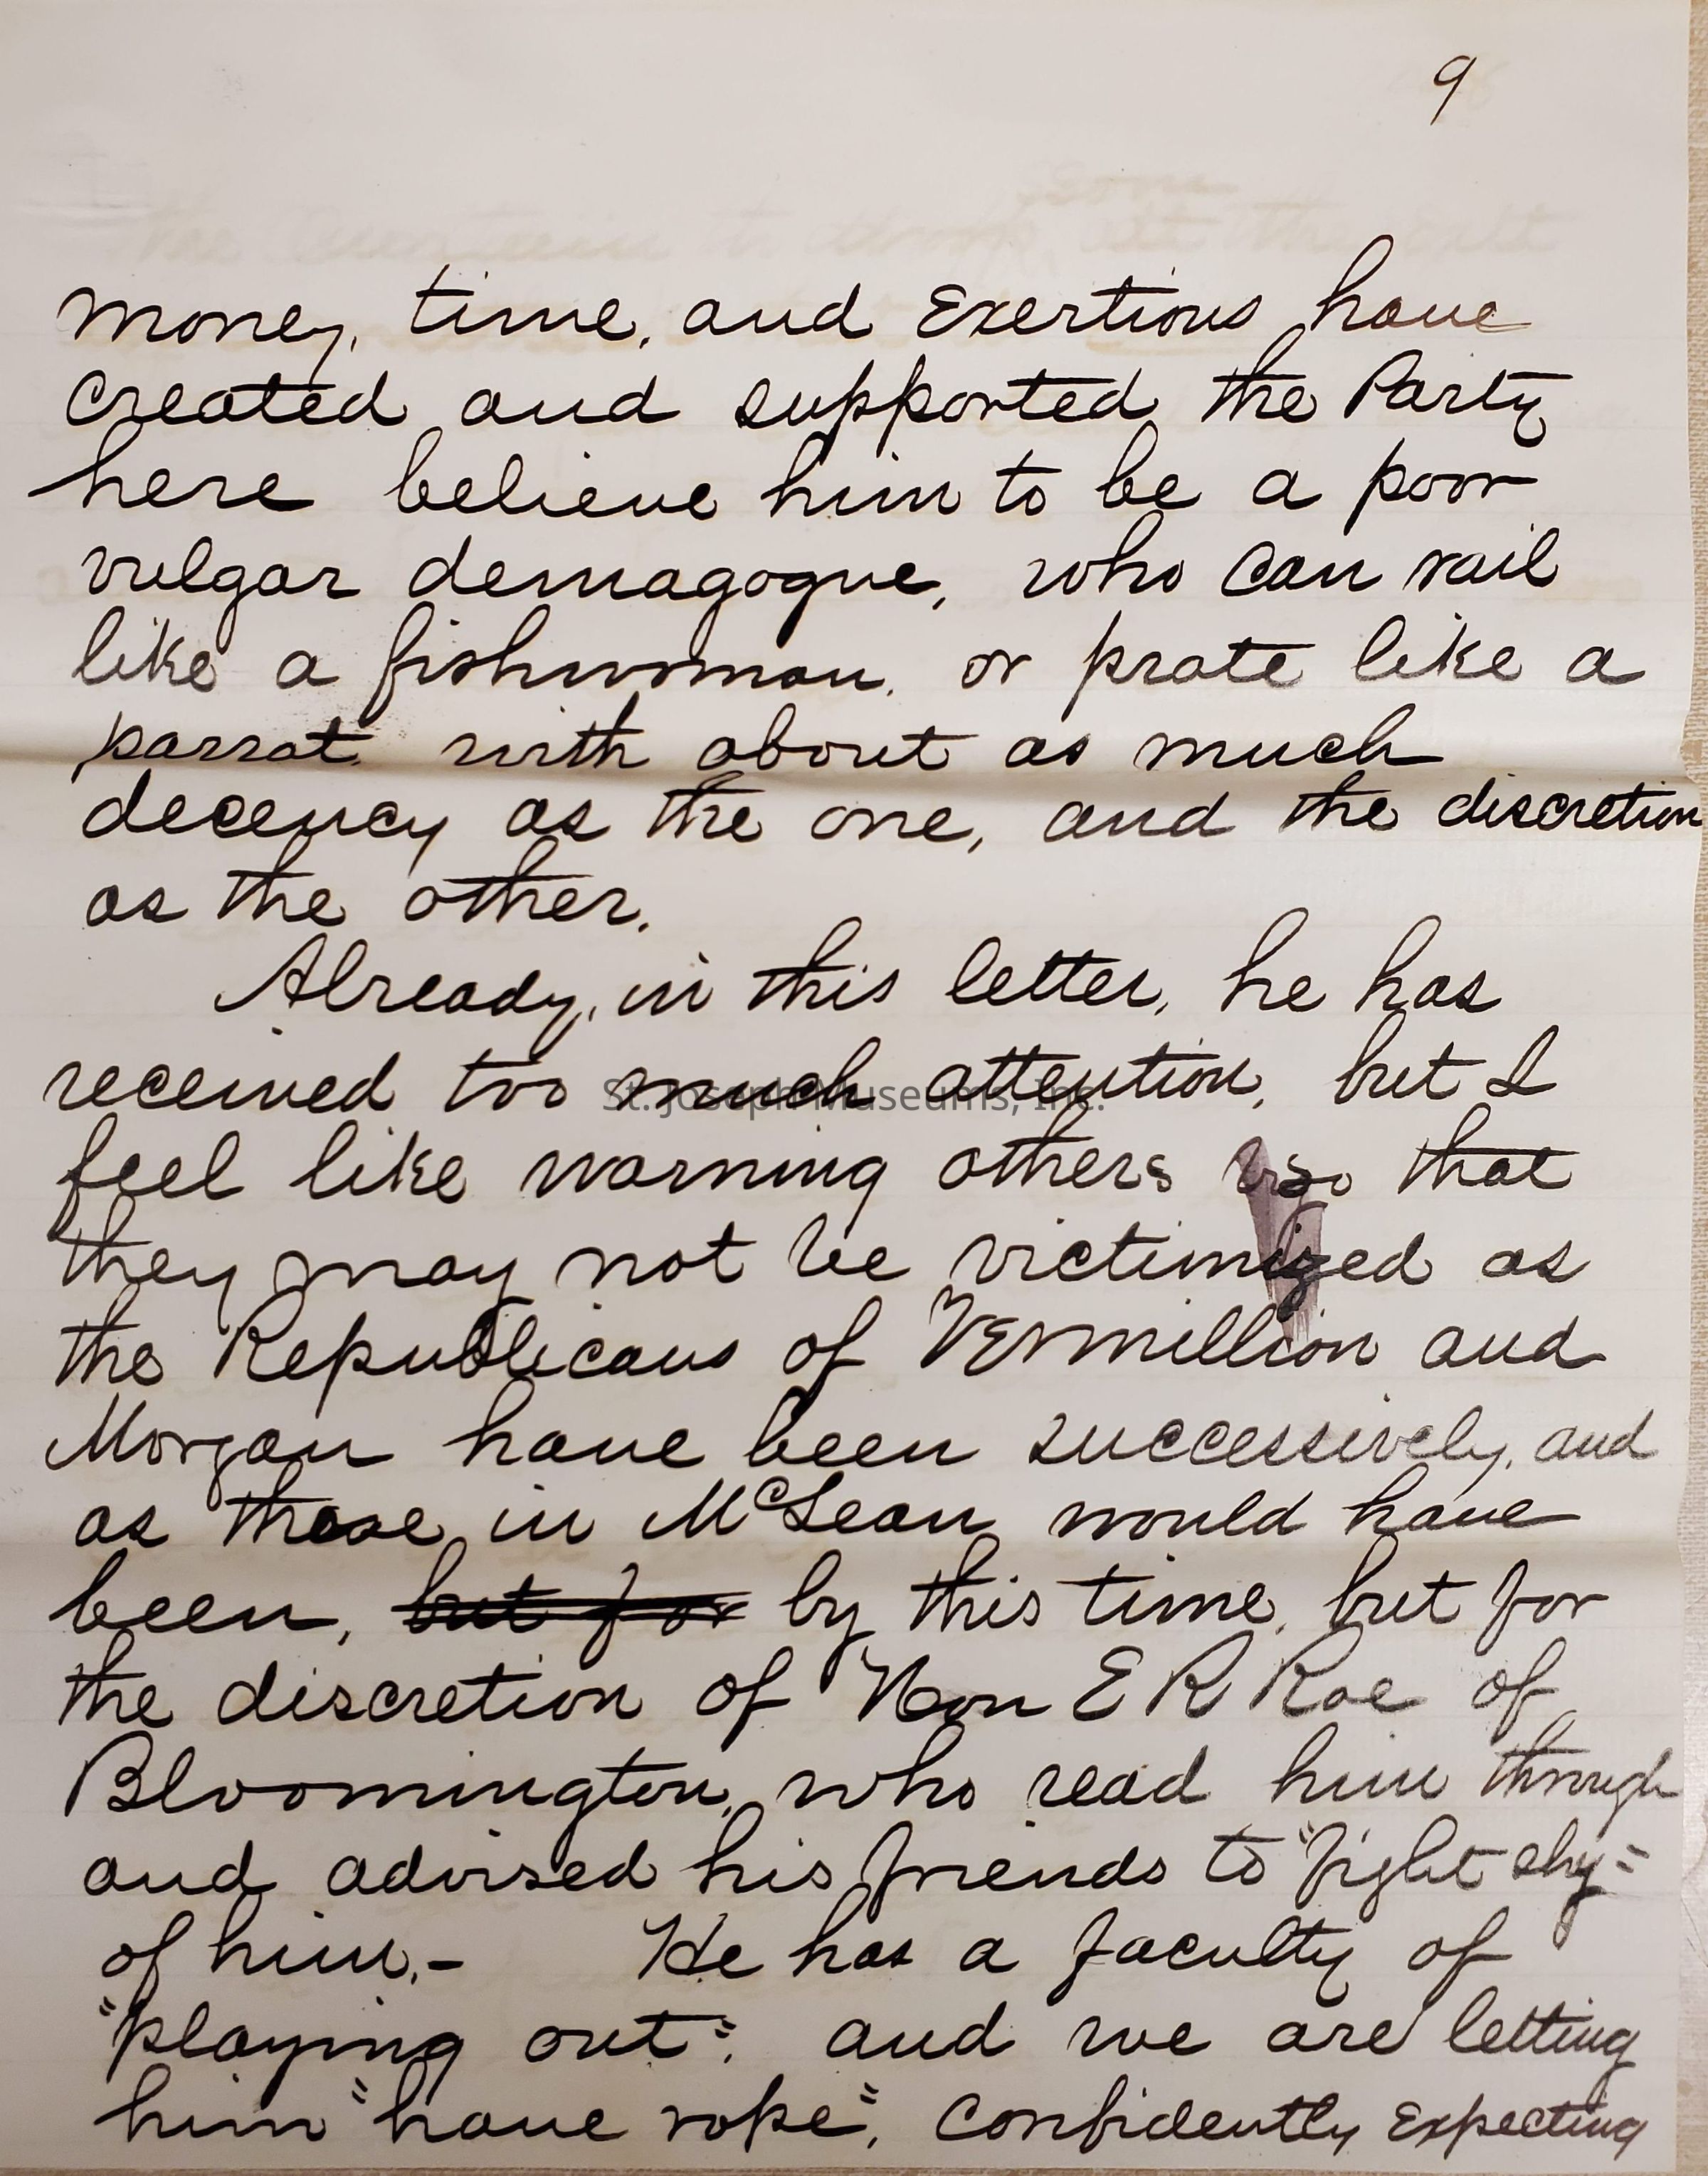 9
money, time, and Exertions have
created and supported the Party
here believe him to be a poor
vulgar demagogue, who can rail
like a fishwoman, or prate like a
parrot with about as much
decency as the one, and the discretion
as the other.
Already, in this letter, he has
received too much attention, but I
St. Joseph Museums, Inc.
feel like warning others so that
they may not be victimized as
the Republicans of Vermillion and
Morgan have been successively, and
as those in McLean would have
been, but for by this time, but for
the discretion of Hon E R Roe of
Bloomington, who read him through
and advised his friends to "fight shy"
of him.- He has a faculty of
"playing out", and we are letting
him "have rope", Confidently Expecting